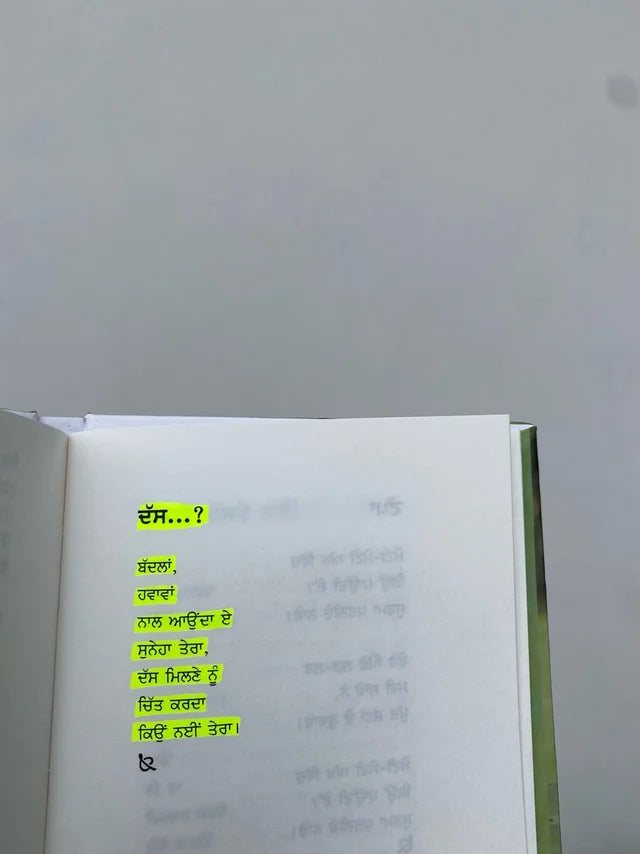 ਦੱਸ...?
ਬੱਦਲਾਂ,
ਹਵਾਵਾਂ
ਨਾਲ ਆਉਂਦਾ ਏ
ਸੁਨੇਹਾ ਤੇਰਾ,
ਦੱਸ ਮਿਲਣੇ ਨੂੰ
ਚਿੱਤ ਕਰਦਾ
ਕਿਉਂ ਨਈਂ ਤੇਰਾ।